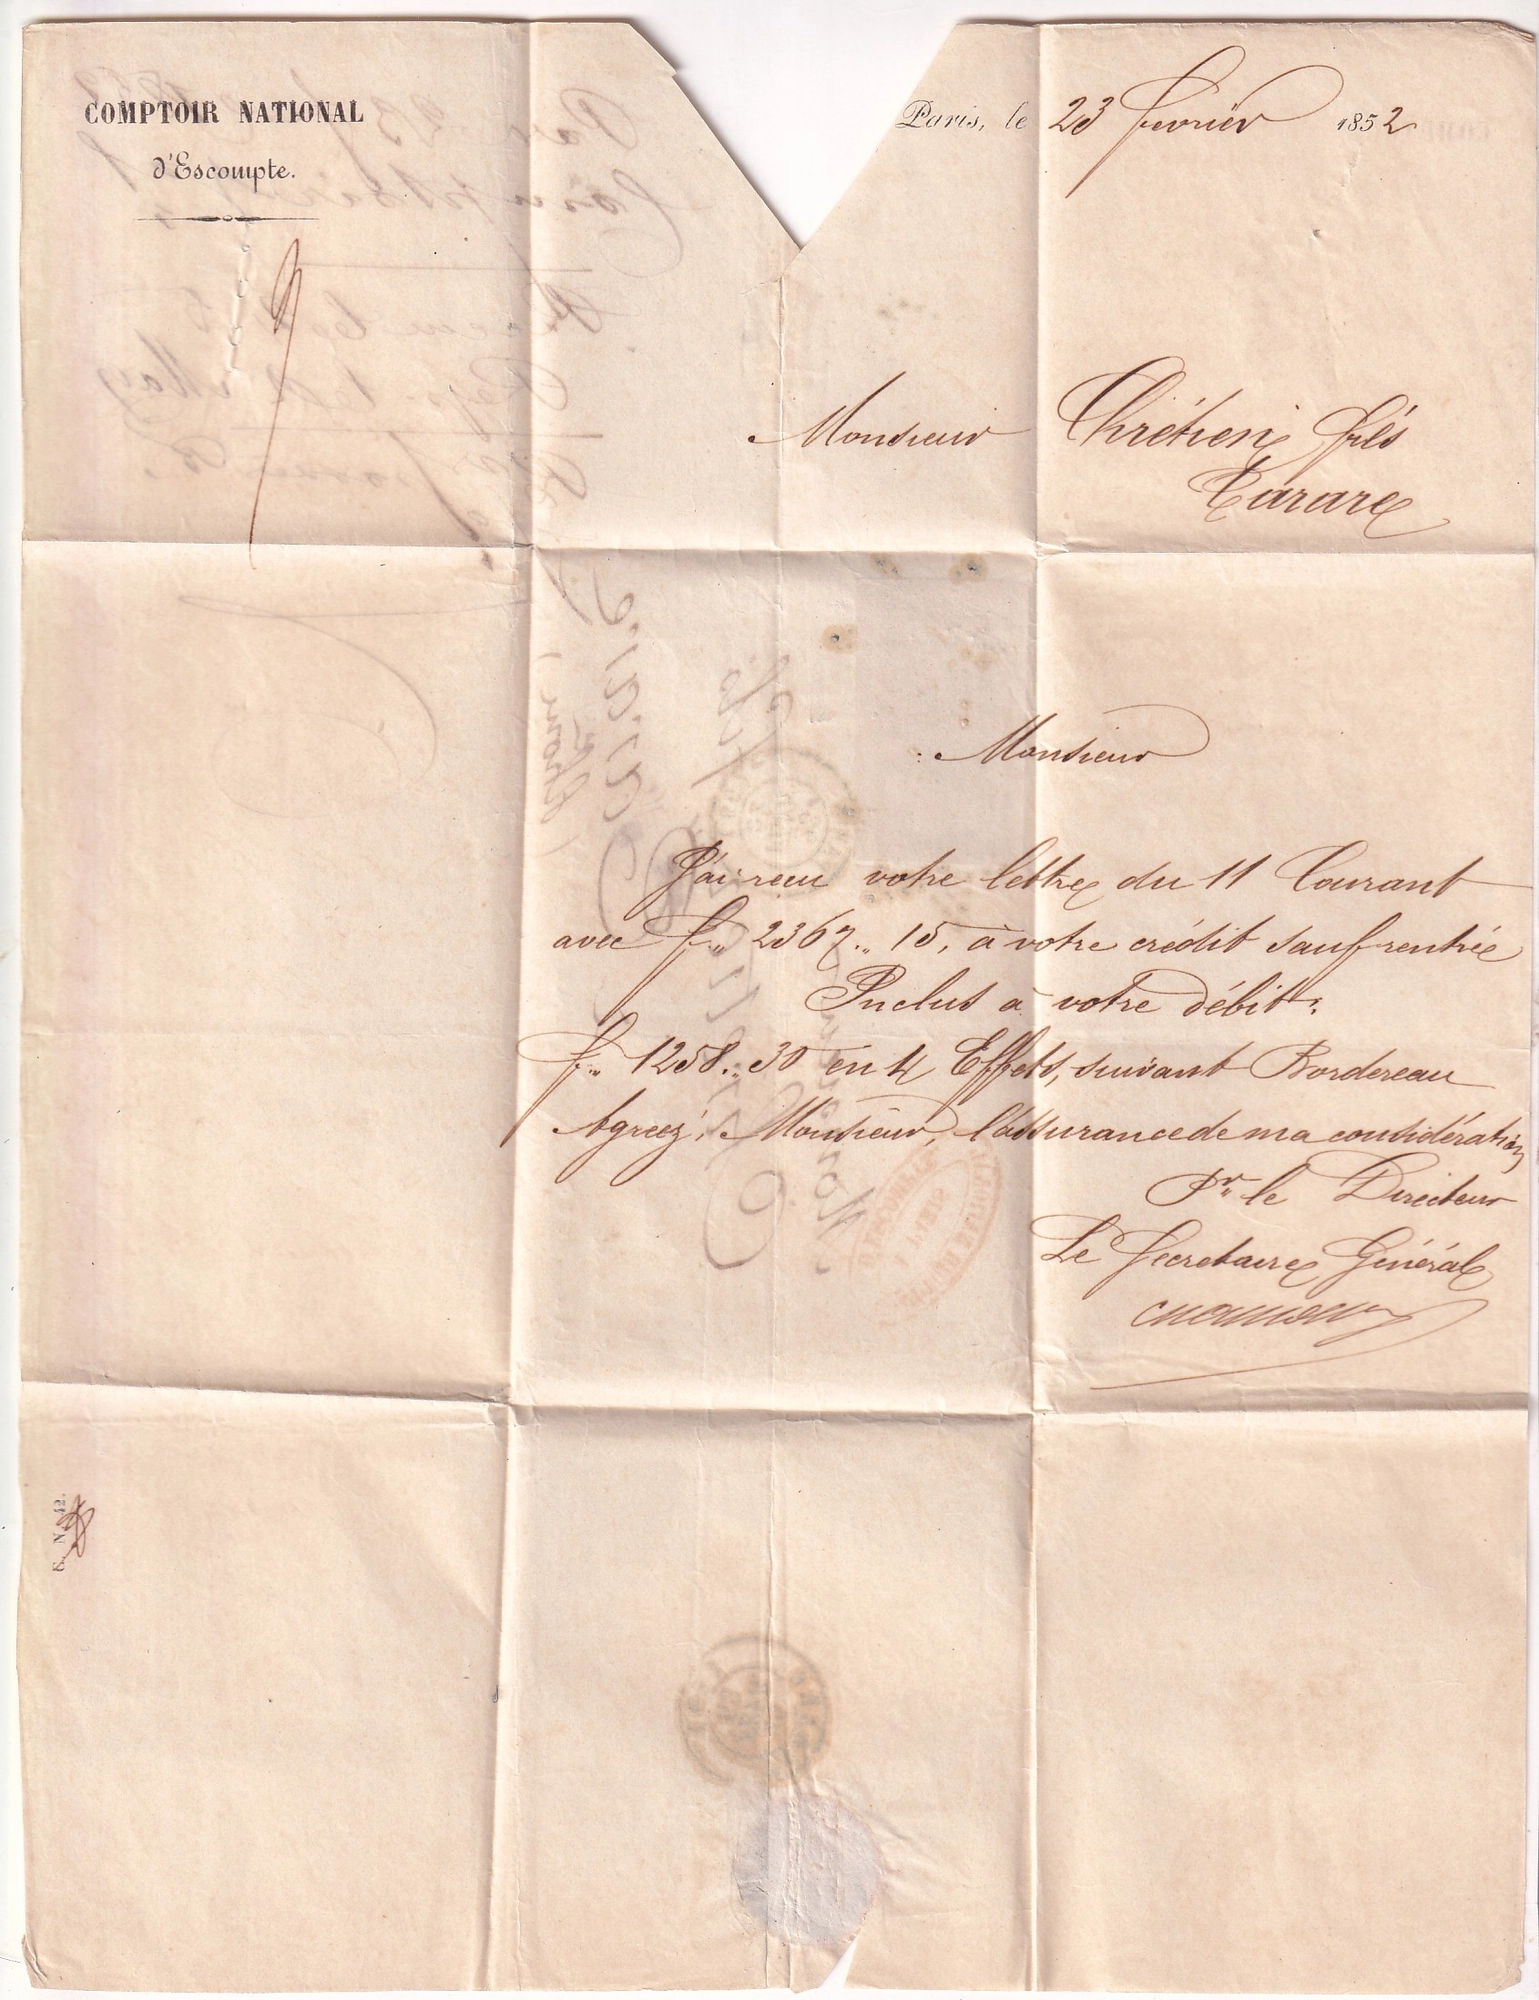 COMPTOIR NATIONAL
d'Escompte.
Paris, le 23 fevrier 1852
Monsieur Chrétien fils
Tarare
Monsieur
J'ai recu votre lettre du 11 Courant
avec f. 2367.. 15, à votre crédit sauf rentrée
Inclus à votre débit:
f. 1258.. 30 en 4 Effets, suivant Bordereau
Agreez, Monsieur, l'assurance de ma considération
Pr le Directeur
Le Secretaire Général